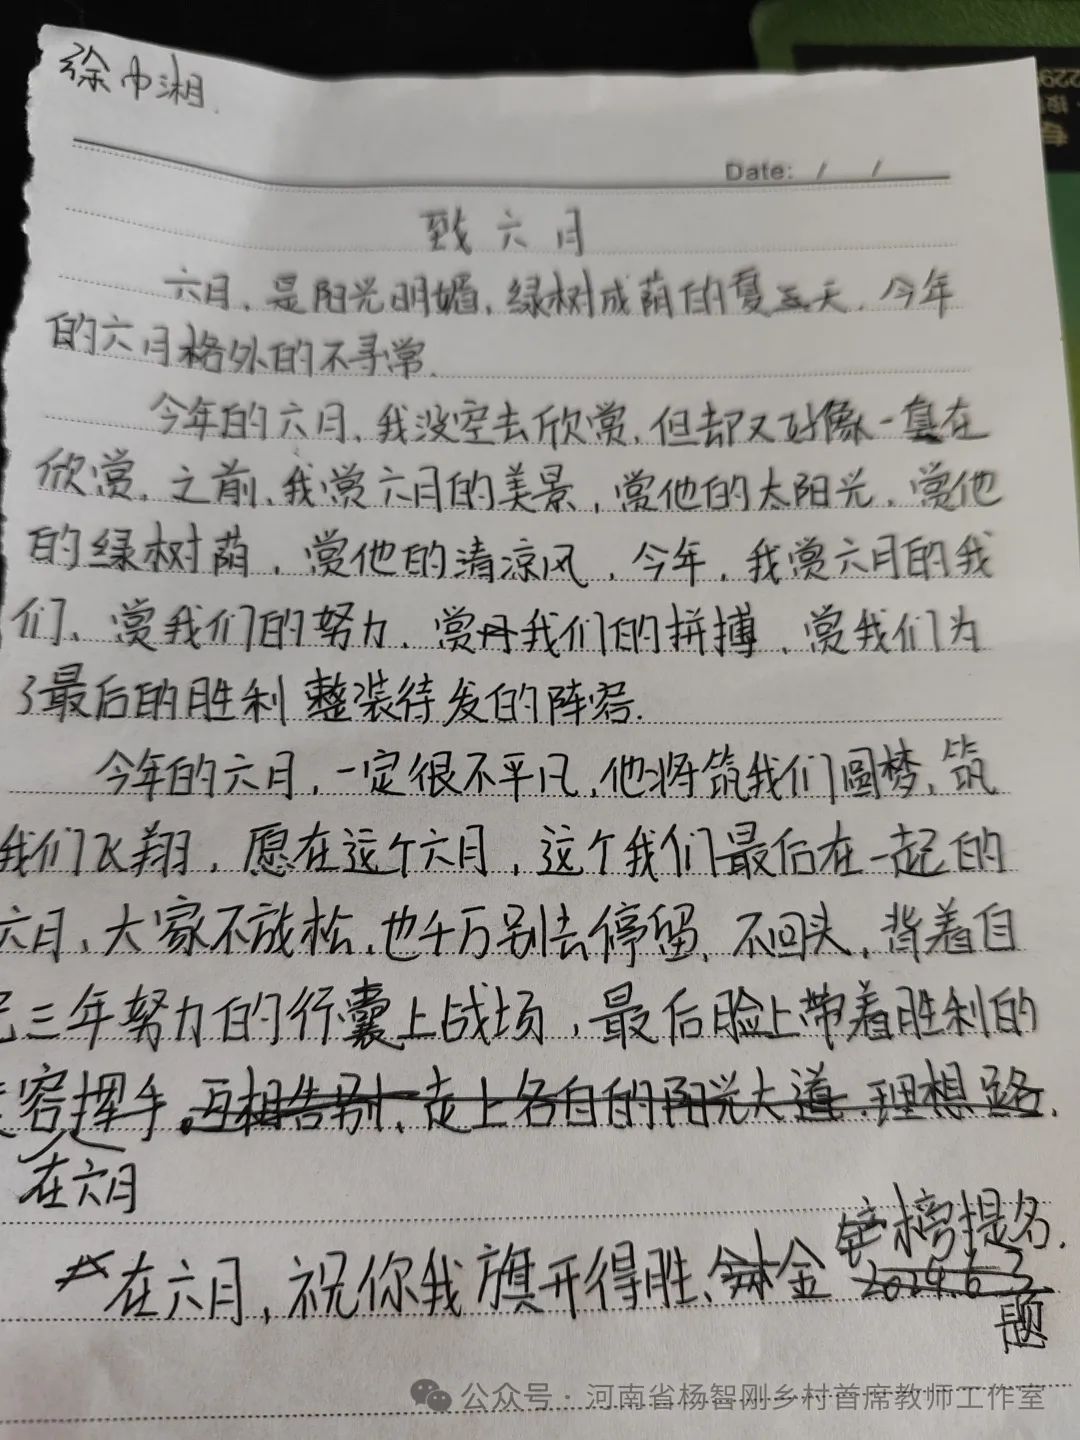 徐巾湘
Date: / /
致六月
六月，是阳光明媚，绿树成荫的夏天，今年
的六月格外的不寻常.
今年的六月、我没空去欣赏，但却又好像一直在
欣赏，之前，我赏六月的美景，赏他的太阳光，赏他
的绿树荫，赏他的清凉风，今年，我赏六月的我
们、赏我们的努力、赏我们的拼搏，赏我们为
了最后的胜利 整装待发的阵容.
今年的六月，一定很不平凡，他将筑我们圆梦，筑
我们飞翔，愿在这个六月，这个我们最后在一起的
六月，大家不放松，也千万别去停留，不回头，背着自
己三年努力的行囊上战场，最后脸上带着胜利的
容挥手，互相告别，走上各自的阳光大道，理想路.
在六月
在六月，祝你我旗开得胜、金榜提名.
2024.6.3
题
公众号·河南省杨智刚乡村首席教师工作室